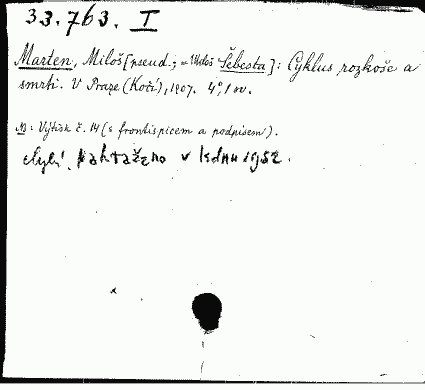 33.763. I
Marten, Miloš [pseud.; = Miloš Šebesta]: Cyklus rozkoše a
smrti. V Praze (Kočí), 1907. 4°, 1 sv.
NB: Výtisk č. 14 (s frontispicem a podpisem).
chybí. Nahrazeno v lednu 1952.